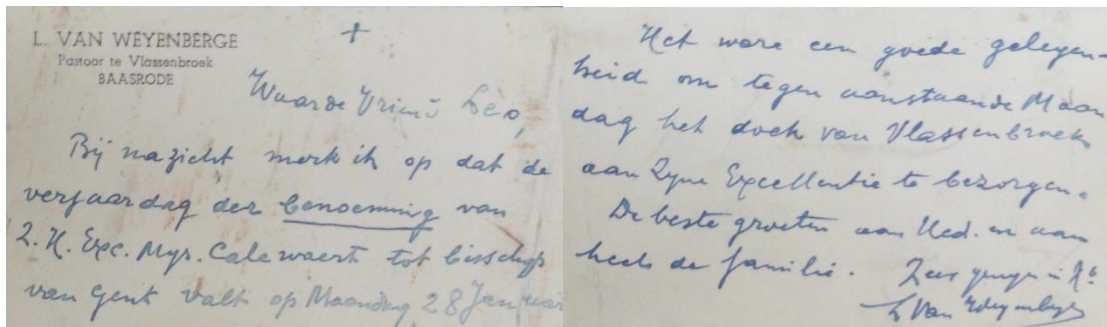 L. VAN WEYENBERGE
Pastoor te Vlassenbroek
BAASRODE
+
Waarde Vriend Léo,
Bij nazicht merk ik op dat de
verjaardag der benoeming van
Z. H. Exc. Mgr. Calewaert tot bisschop
van Gent valt op Maandag 28 Januari
Het ware een goede gelegen-
heid om tegen aanstaande Maan
dag het doek van Vlassenbroek
aan Zyne Excellentie te bezorgen.
De beste groeten aan Ued. en aan
heele de familie. Zeer genegen in X°
L Van Weyenberge